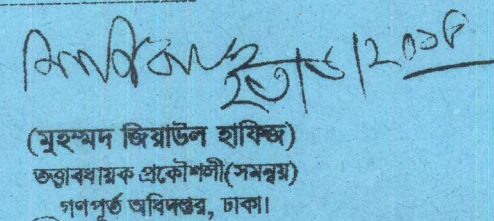 ২৩/৬/২০১৮
(মুহম্মদ জিয়াউল হাফিজ)
তত্ত্বাবধায়ক প্রকৌশলী(সমন্বয়)
গণপূর্ত অধিদপ্তর, ঢাকা।